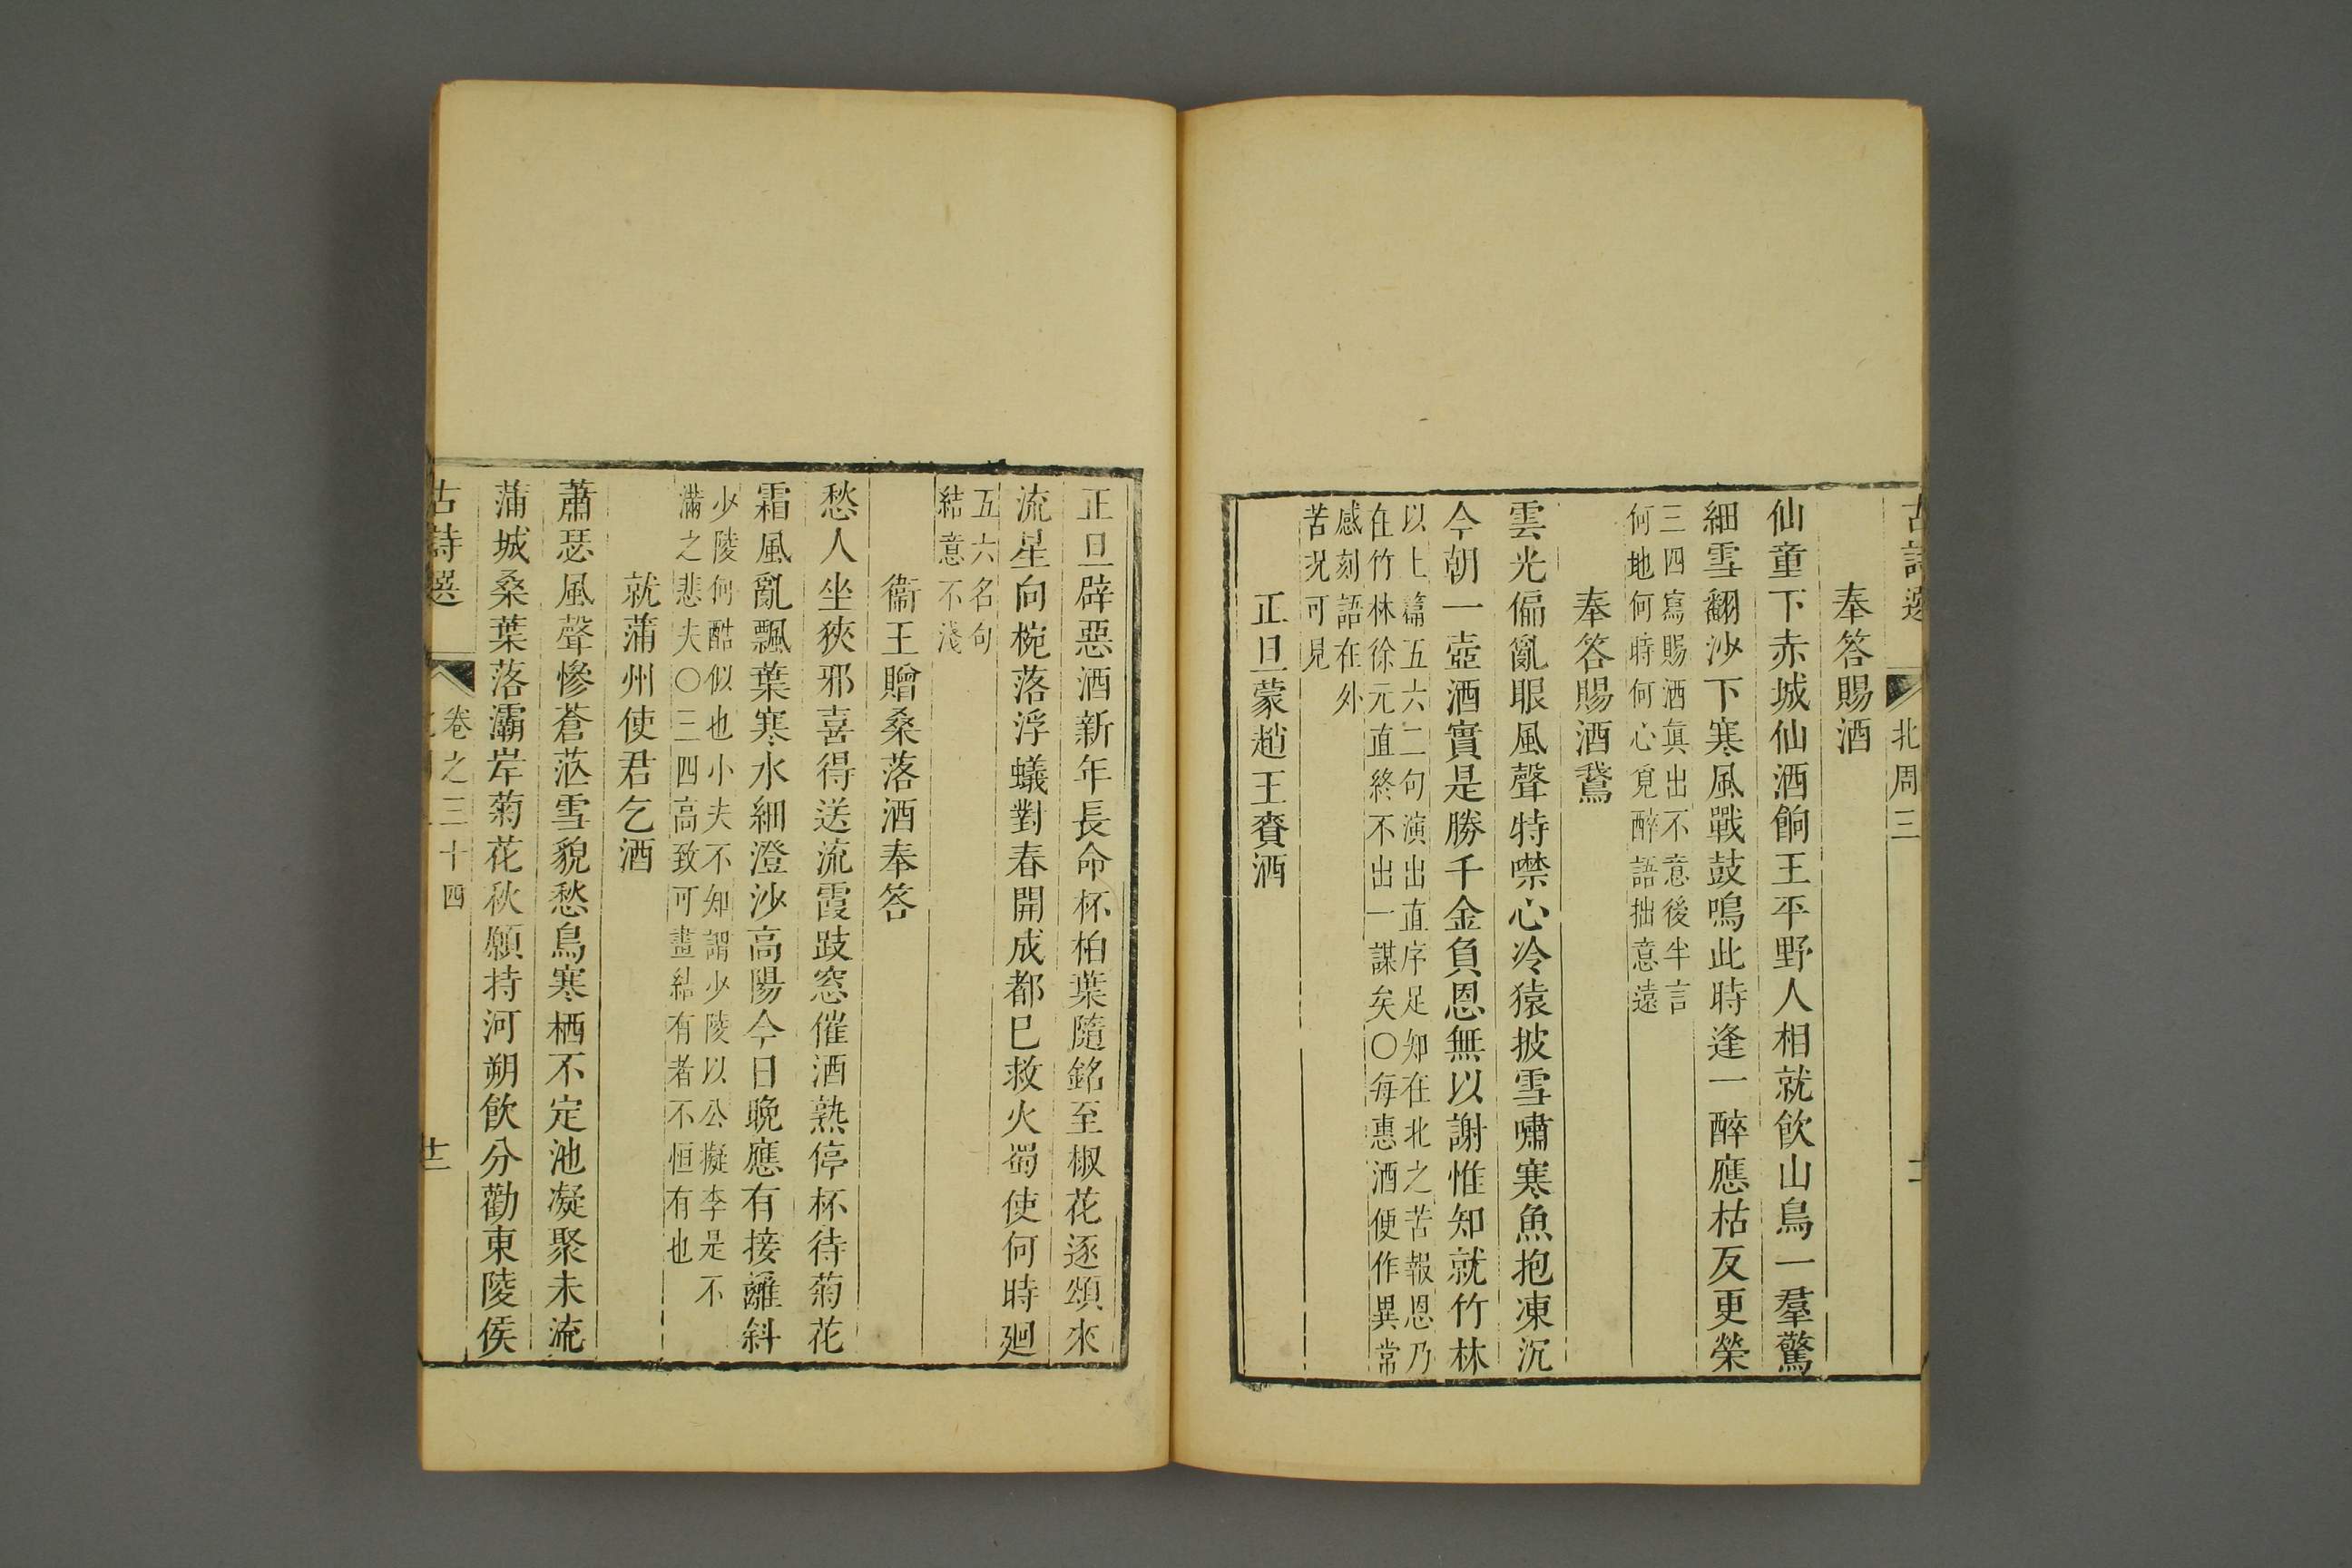 古詩選 北周三
奉答賜酒
仙童下赤城仙酒餉王平野人相就飲山鳥一羣驚
細雪翻沙下寒風戰鼓鳴此時逢一醉應枯反更榮
三四寫賜酒眞出不意後半言
何地何時何心覓醉語拙意遠
奉答賜酒鵞
雲光偏亂眼風聲特噤心冷猿披雪嘯寒魚抱凍沉
今朝一壺酒實是勝千金負恩無以謝惟知就竹林
以上篇五六二句演出直序足知在北之苦報恩乃
在竹林徐元直終不出一謀矣○每惠酒便作異常
感刻語在外
苦況可見
正旦蒙趙王賚酒
正旦辟惡酒新年長命杯柏葉隨銘至椒花逐頌來
流星向椀落浮蟻對春開成都巳救火蜀使何時廻
五六名句
結意不淺
衞王贈桑落酒奉答
愁人坐狹邪喜得送流霞跂窓催酒熟停杯待菊花
霜風亂飄葉寒水細澄沙高陽今日晚應有接䍦斜
少陵何酷似也小夫不知謂少陵以公擬李是不
滿之悲夫○三四高致可畫結有者不恒有也
就蒲州使君乞酒
蕭瑟風聲慘蒼茫雪貌愁鳥寒栖不定池凝聚未流
蒲城桑葉落灞岸菊花秋願持河朔飮分勸東陵侯
古詩選 卷之三十四 廿二